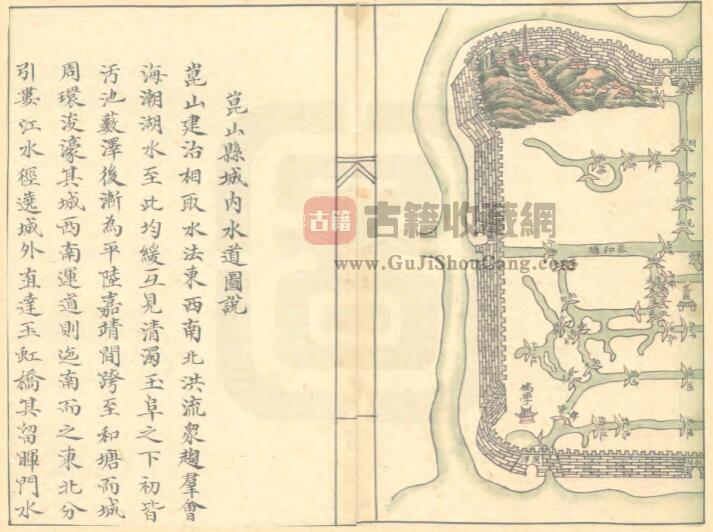 至和塘
儒學
崑山縣城内水道圖說
崑山建治相取水法東西南北洪流衆趨羣會
海潮湖水至此均緩互見清濁玉阜之下初皆
汚池藪澤後漸為平陸嘉靖間跨至和塘而城
周環浚濠其城西南運道則迤南而之東北分
引婁江水徑遶城外直達玉虹橋其留暉門水
古籍
古籍收藏網
www.GuJiShouCang.com